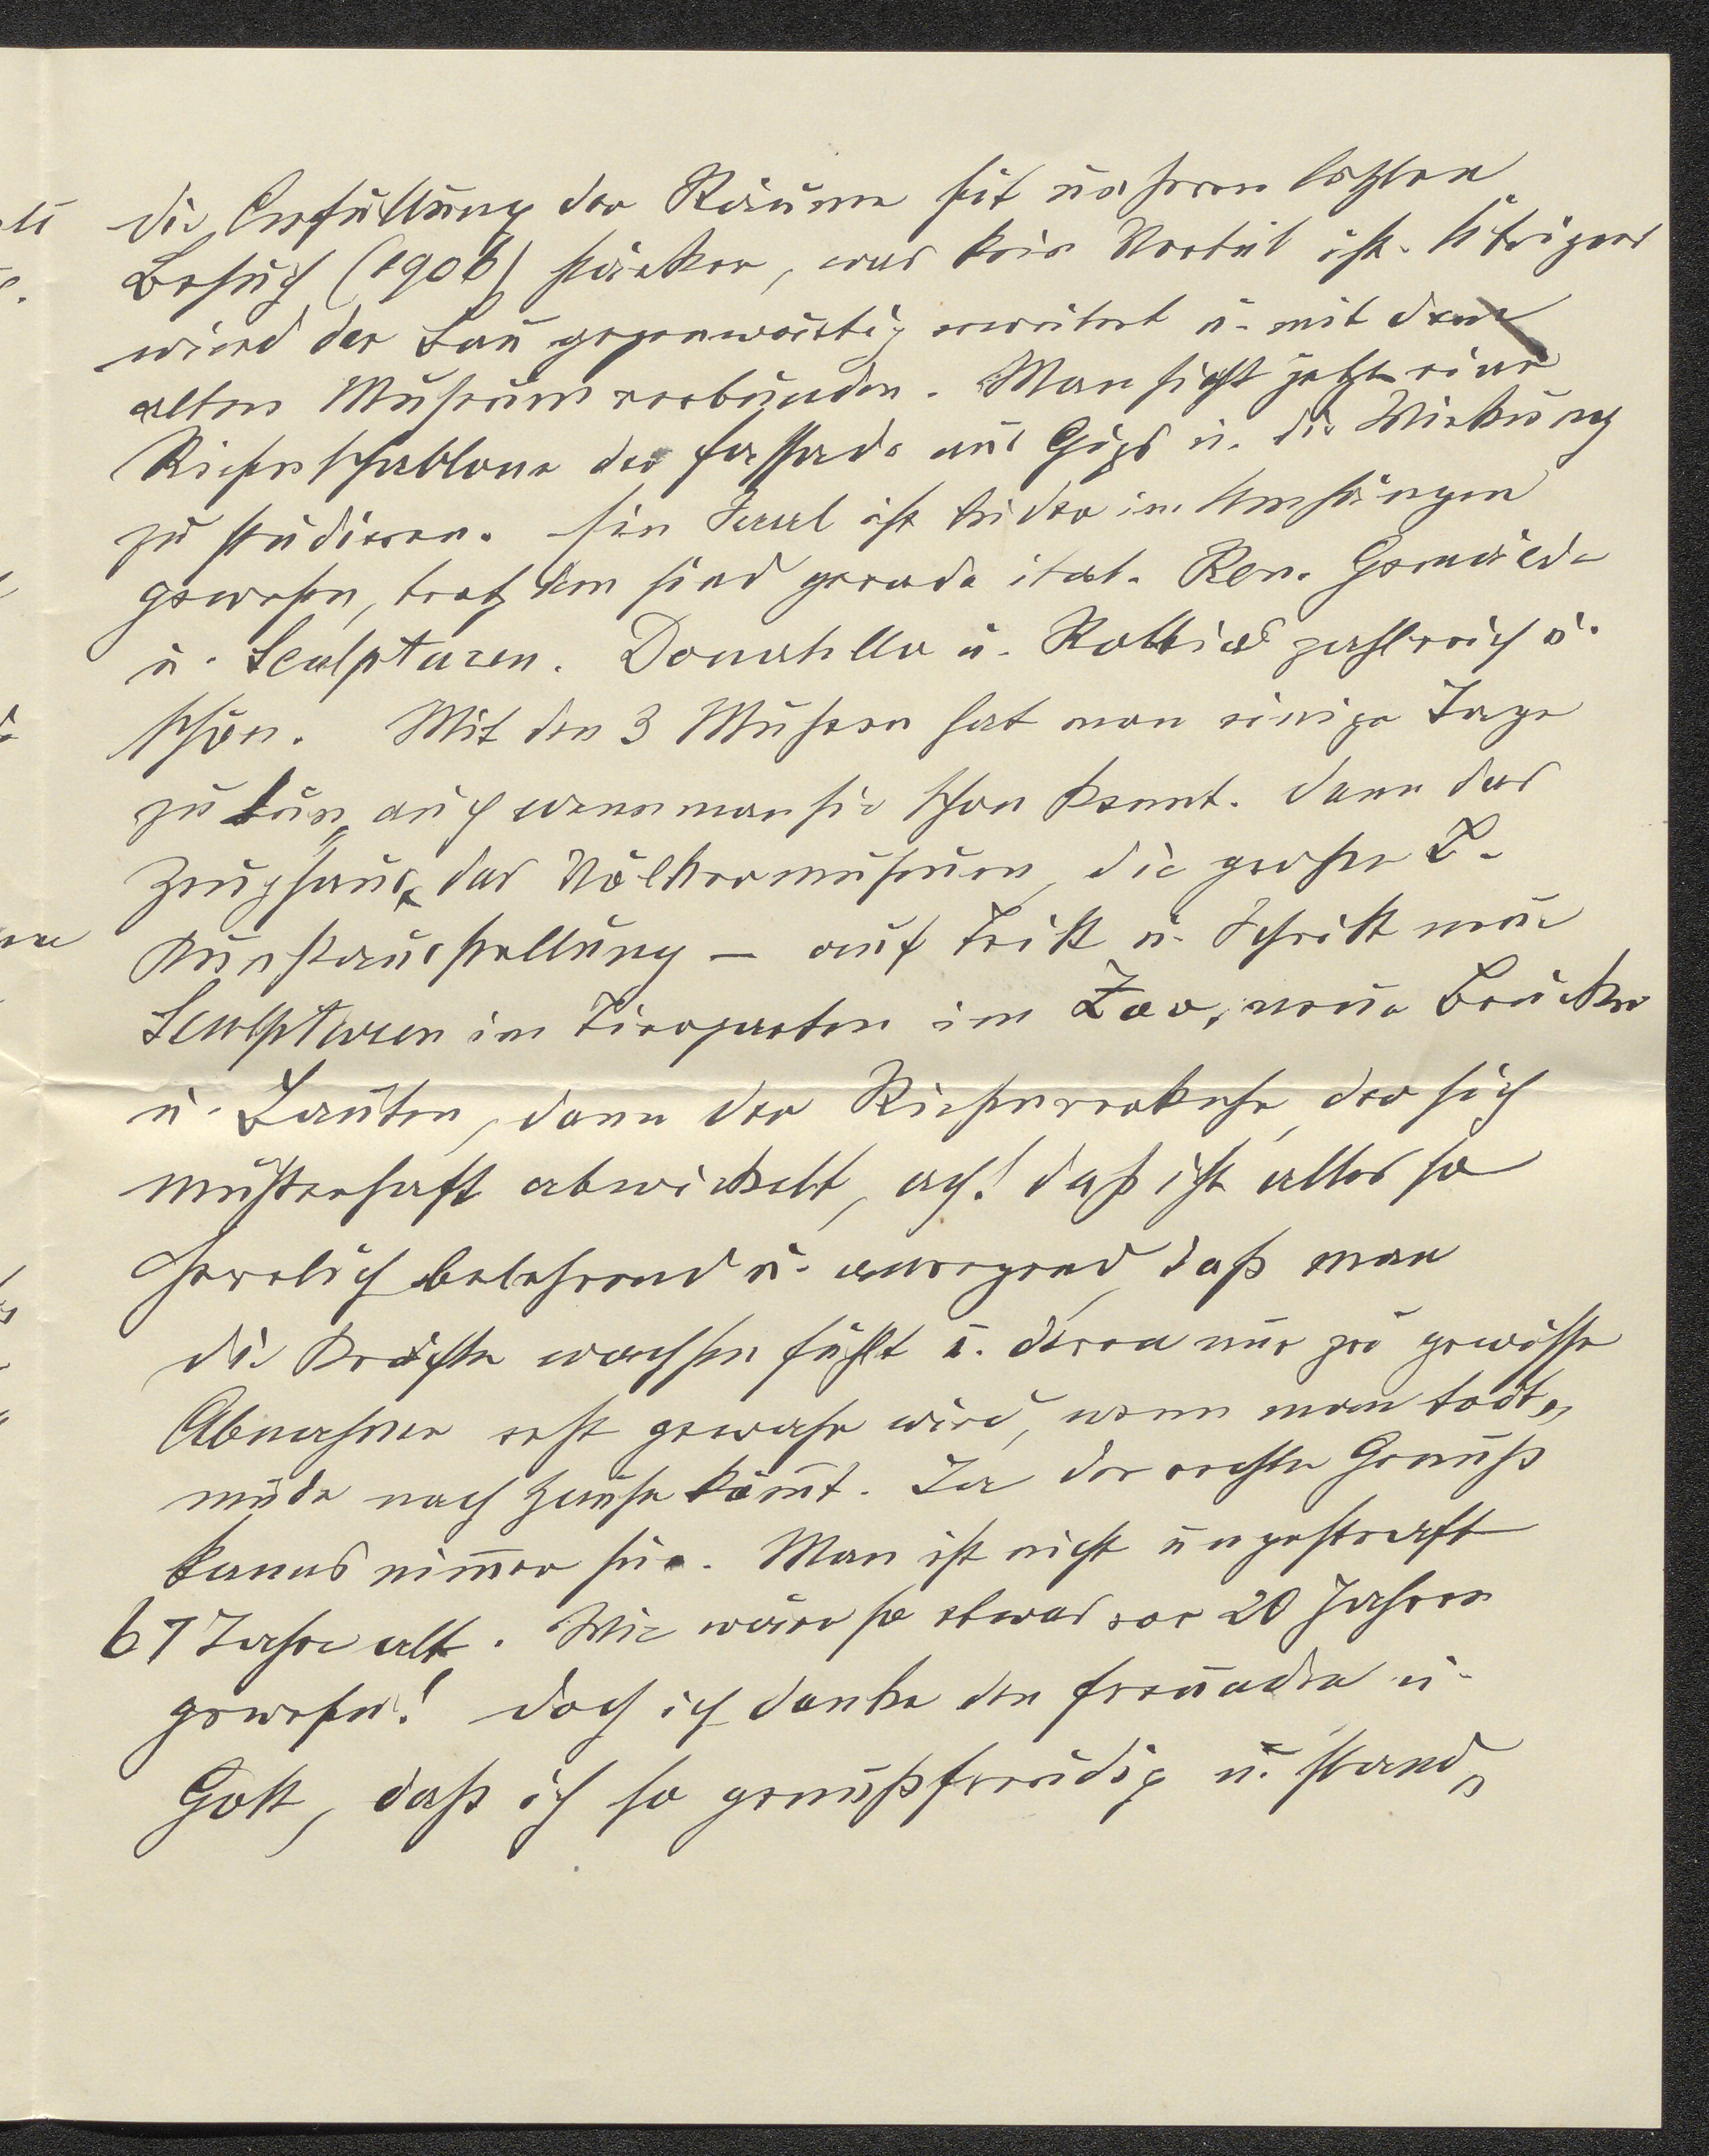 die Erfüllung der Räume seit unserem letzten
Besuch (1906) stärker, was kein Vorteil ist. Übrigens
wird der Bau gegenwärtig erweitert u. mit dem
alten Museum verbunden. Man sieht jetzt eine
Riesenschablone der Fassade aus Gips u. die Wirkung
zu studieren. Ein Saal ist leider im Umhängen
gewesen, trotzdem sind gerade ital. Ren. Gemälde
u. Sculpturen. Donatello u. Robbias zahlreich u.
schön. Mit den 3 Museen hat man einige Tage
zu tun, auch wenn man sie schon kennt. Dann das
Zeughaus, das Völkermuseum, die große B.
Kunstausstellung – auf Tritt u. Schritt neue
Sculpturen im Tiergarten im Zoo, neue Brücken
u. Bauten, dann der Riesenverkehr, der sich
musterhaft abwickelt, ach! daß ist alles so
herrlich belehrend u. anregend, daß man
die Kräfte wachsen fühlt u. deren nur zu gewisse
Abnahme erst gewahr wird, wenn man todt„
müde nach Hause kom̅t. Ja der rechte Genuß
kanns nim̅er sein. Man ist nicht ungestraft
67 Jahre alt. Wie wäre so etwas vor 20 Jahren
gewesen! Doch ich danke den Freunden u.
Gott, daß ich so genußfreudig u. stand„